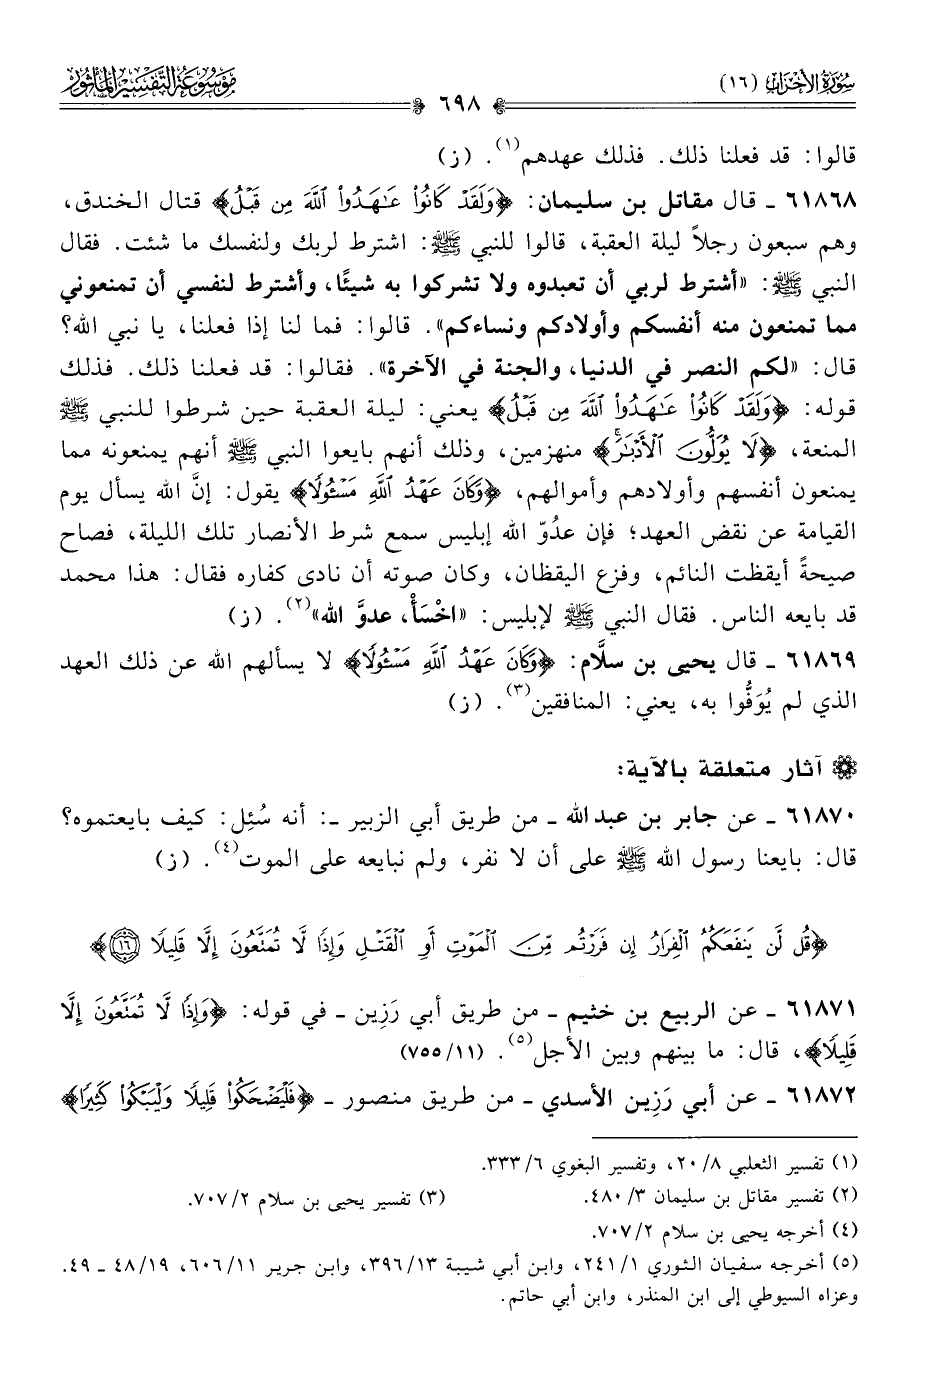 سُورَةُ الأَحْزَاب (١٦)
مَوْسُوعَة التَّفْسِيْر المَأْثُور
٦٩٨
قالوا: قد فعلنا ذلك. فذلك عهدهم(١). (ز)
٦١٨٦٨ ـ قال مقاتل بن سليمان: ﴿وَلَقَدْ كَانُوا۟ عَٰهَدُوا۟ ٱللَّهَ مِن قَبْلُ﴾ قتال الخندق،
وهم سبعون رجلاً ليلة العقبة، قالوا للنبي ﷺ: اشترط لربك ولنفسك ما شئت. فقال
النبي ﷺ: «أشترط لربي أن تعبدوه ولا تشركوا به شيئًا، وأشترط لنفسي أن تمنعوني
مما تمنعون منه أنفسكم وأولادكم ونساءكم». قالوا: فما لنا إذا فعلنا، يا نبي الله؟
قال: «لكم النصر في الدنيا، والجنة في الآخرة». فقالوا: قد فعلنا ذلك. فذلك
قوله: ﴿وَلَقَدْ كَانُوا۟ عَٰهَدُوا۟ ٱللَّهَ مِن قَبْلُ﴾ يعني: ليلة العقبة حين شرطوا للنبي ﷺ
المنعة، ﴿لَا يُوَلُّونَ ٱلْأَدْبَٰرَۚ﴾ منهزمين، وذلك أنهم بايعوا النبي ﷺ أنهم يمنعونه مما
يمنعون أنفسهم وأولادهم وأموالهم، ﴿وَكَانَ عَهْدُ ٱللَّهِ مَسْـُٔولًا﴾ يقول: إنَّ الله يسأل يوم
القيامة عن نقض العهد؛ فإن عدُوّ الله إبليس سمع شرط الأنصار تلك الليلة، فصاح
صيحةً أيقظت النائم، وفزع اليقظان، وكان صوته أن نادى كفاره فقال: هذا محمد
قد بايعه الناس. فقال النبي ﷺ لإبليس: «اخْسَأْ، عدوَّ الله»(٢). (ز)
٦١٨٦٩ ـ قال يحيى بن سلَّام: ﴿وَكَانَ عَهْدُ ٱللَّهِ مَسْـُٔولًا﴾ لا يسألهم الله عن ذلك العهد
الذي لم يُوَفُّوا به، يعني: المنافقين(٣). (ز)
آثار متعلقة بالآية:
٦١٨٧٠ ـ عن جابر بن عبد الله ـ من طريق أبي الزبير ـ: أنه سُئِل: كيف بايعتموه؟
قال: بايعنا رسول الله ﷺ على أن لا نفر، ولم نبايعه على الموت(٤). (ز)
﴿قُل لَّن يَنفَعَكُمُ ٱلْفِرَارُ إِن فَرَرْتُم مِّنَ ٱلْمَوْتِ أَوِ ٱلْقَتْلِ وَإِذًا لَّا تُمَتَّعُونَ إِلَّا قَلِيلًا ١٦﴾
٦١٨٧١ ـ عن الربيع بن خثيم ـ من طريق أبي رَزِين ـ في قوله: ﴿وَإِذًا لَّا تُمَتَّعُونَ إِلَّا
قَلِيلًا﴾، قال: ما بينهم وبين الأجل(٥). (١١/ ٧٥٥)
٦١٨٧٢ ـ عن أبي رَزِين الأسدي ـ من طريق منصور ـ ﴿فَلْيَضْحَكُوا۟ قَلِيلًا وَلْيَبْكُوا۟ كَثِيرًا﴾
(١) تفسير الثعلبي ٨/ ٢٠، وتفسير البغوي ٦/ ٣٣٣.
(٢) تفسير مقاتل بن سليمان ٣/ ٤٨٠.
(٣) تفسير يحيى بن سلام ٢/ ٧٠٧.
(٤) أخرجه يحيى بن سلام ٢/ ٧٠٧.
(٥) أخرجه سفيان الثوري ١/ ٢٤١، وابن أبي شيبة ١٣/ ٣٩٦، وابن جرير ١١/ ٦٠٦، ١٩/ ٤٨ ـ ٤٩.
وعزاه السيوطي إلى ابن المنذر، وابن أبي حاتم.